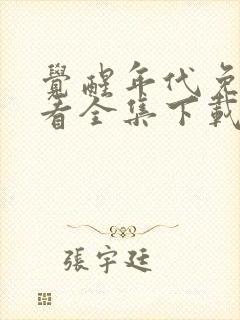 覺醒年代免
看全集下載
張宇廷